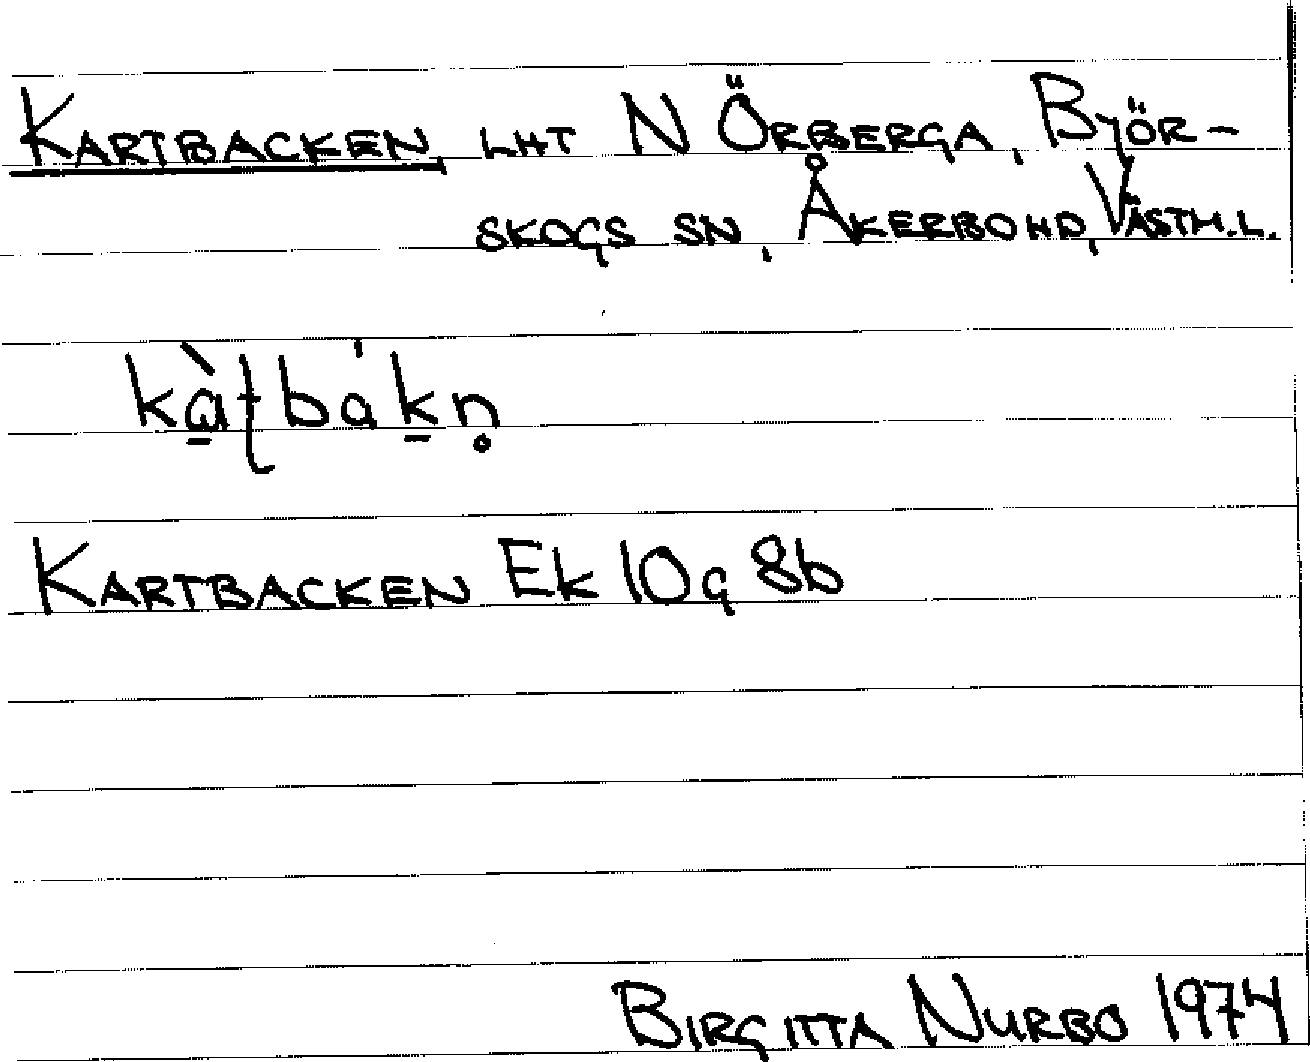 KARTBACKEN, LHT N ÖRBERGA, BYÖR-
SKOGS SN, ÅKERBO HD, VÄSTM.L.
kà̠ʈbák̠n̥
KARTBACKEN Ek 10g 8b
BIRGITTA NURBO 1974